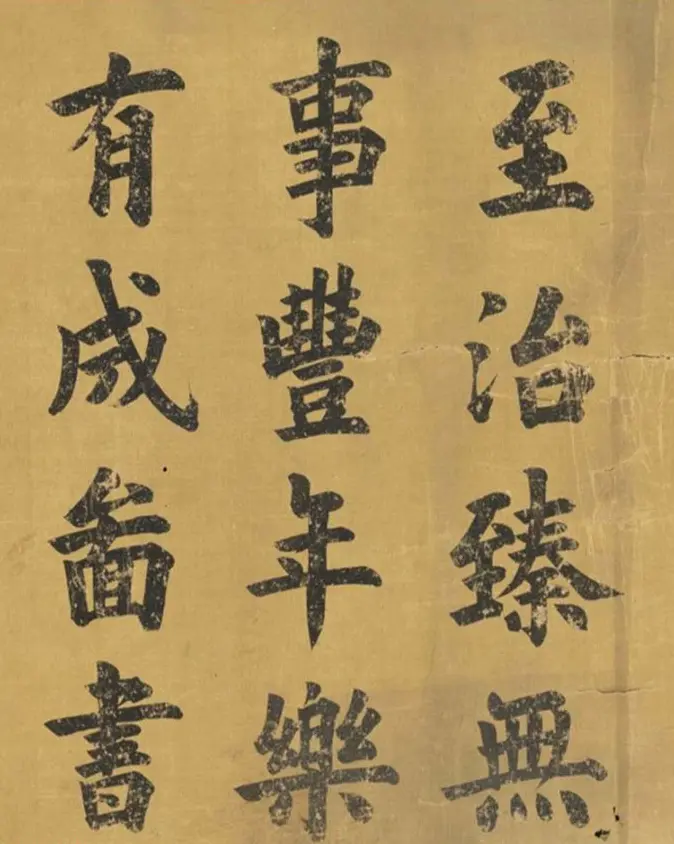 至治臻無
事豐年樂
有成啚書